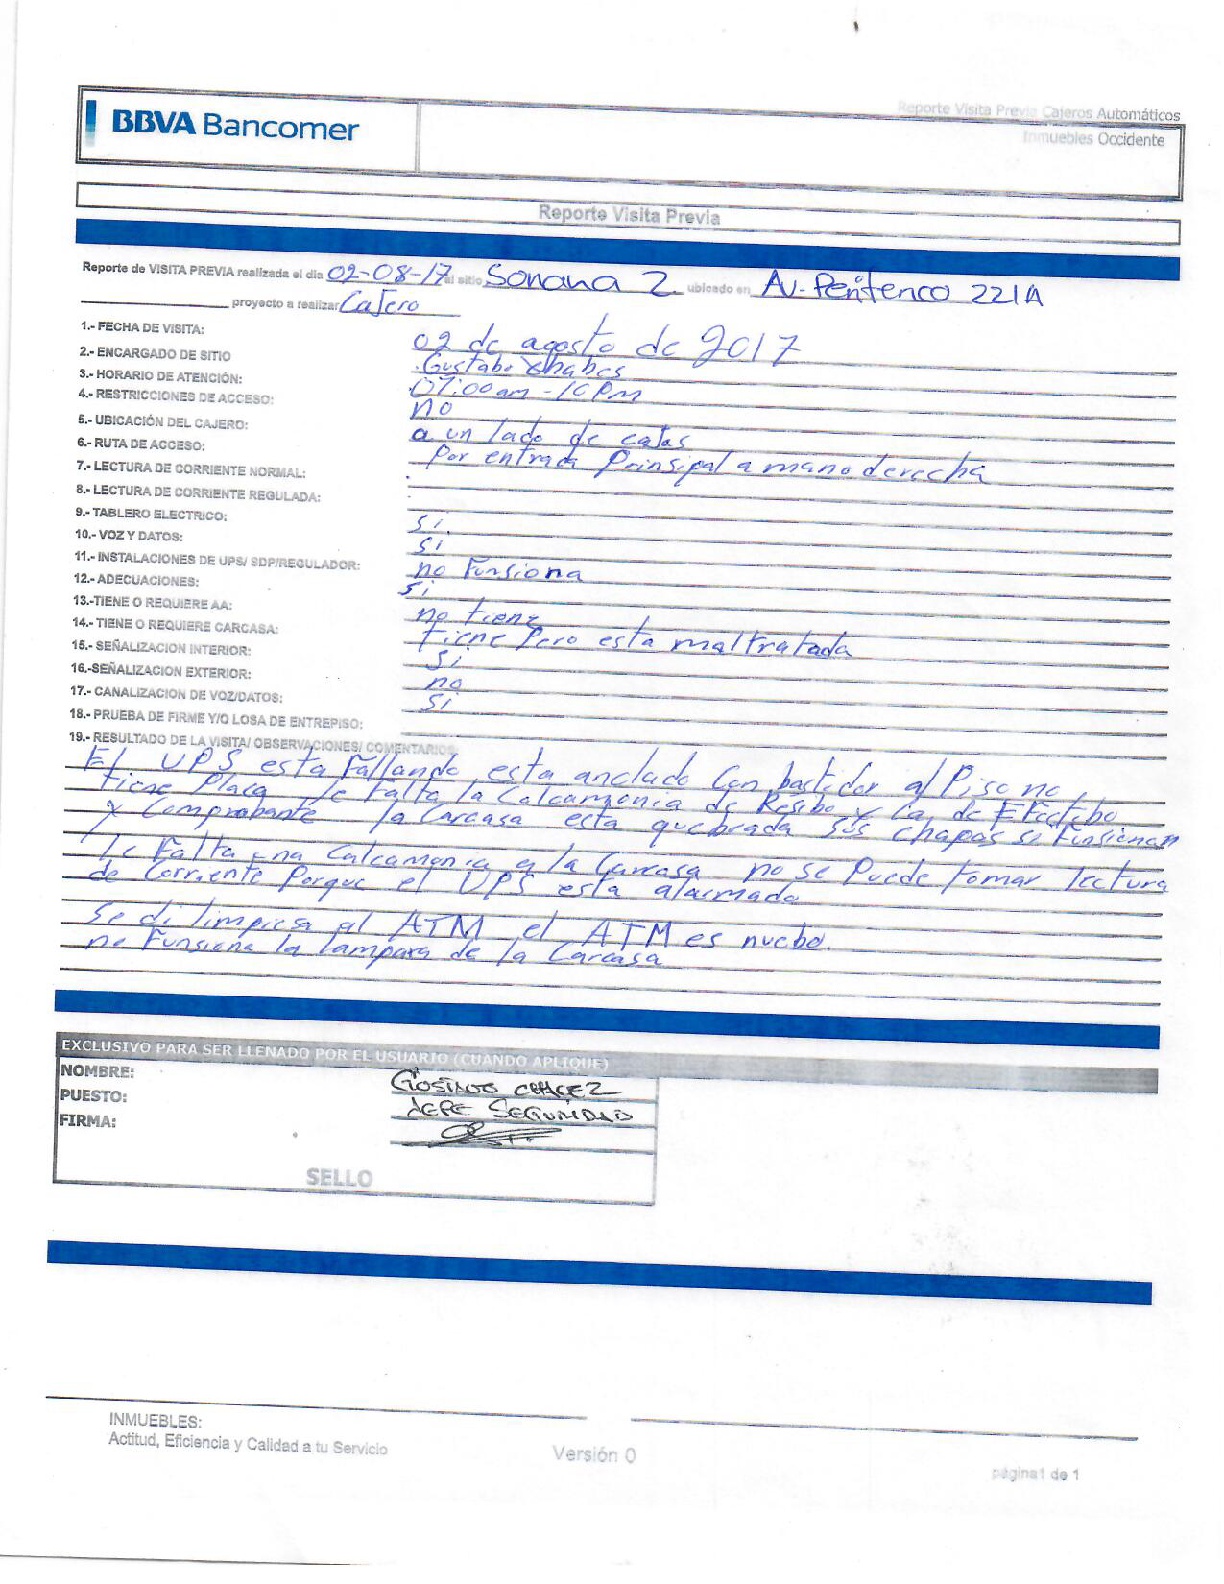 BBVA Bancomer
Reporte Visita Previa Cajeros Automáticos
Inmuebles Occidente
Reporte Visita Previa
Reporte de VISITA PREVIA realizada el dia 02-08-17 al sitio Soriana 2 ubicado en Av. Periferico 221A
proyecto a realizar Cajero
1.- FECHA DE VISITA: 02 de agosto de 2017
2.- ENCARGADO DE SITIO Gustabo
3.- HORARIO DE ATENCIÓN: 07:00am - 10 Pm
4.- RESTRICCIONES DE ACCESO: no
5.- UBICACIÓN DEL CAJERO: a un lado de cajas
6.- RUTA DE ACCESO: Por entrada Prinsipal a mano derecha
7.- LECTURA DE CORRIENTE NORMAL:
8.- LECTURA DE CORRIENTE REGULADA:
9.- TABLERO ELECTRICO: si
10.- VOZ Y DATOS: si
11.- INSTALACIONES DE UPS/ SDP/REGULADOR: no Funsiona
12.- ADECUACIONES: si
13.-TIENE O REQUIERE AA: no tiene
14.- TIENE O REQUIERE CARCASA: tiene Pero esta maltratada
15.- SEÑALIZACION INTERIOR: si
16.-SEÑALIZACION EXTERIOR: no
17.- CANALIZACION DE VOZ/DATOS: si
18.- PRUEBA DE FIRME Y/O LOSA DE ENTREPISO:
19.- RESULTADO DE LA VISITA/ OBSERVACIONES/ COMENTARIOS:
El UPS esta Fallando esta anclado Con bastidor al Piso no
tiene Placa le Falta la Calcamonia de Resibo y la de EFectibo
y Comprobante la Carcasa esta quebrada sus chapas si Funsionan
le Falta una Calcamonia a la Carcasa no se Puede tomar lectura
de Corriente Porque el UPS esta alarmado
se di limpiesa al ATM el ATM es nuebo.
no Funsiona la lampara de la Carcasa
EXCLUSIVO PARA SER LLENADO POR EL USUARIO (CUANDO APLIQUE)
NOMBRE: GUSTAVO CHAVEZ
PUESTO: JEFE SEGURIDAD
FIRMA:
SELLO
INMUEBLES:
Actitud, Eficiencia y Calidad a tu Servicio
Versión 0
página1 de 1